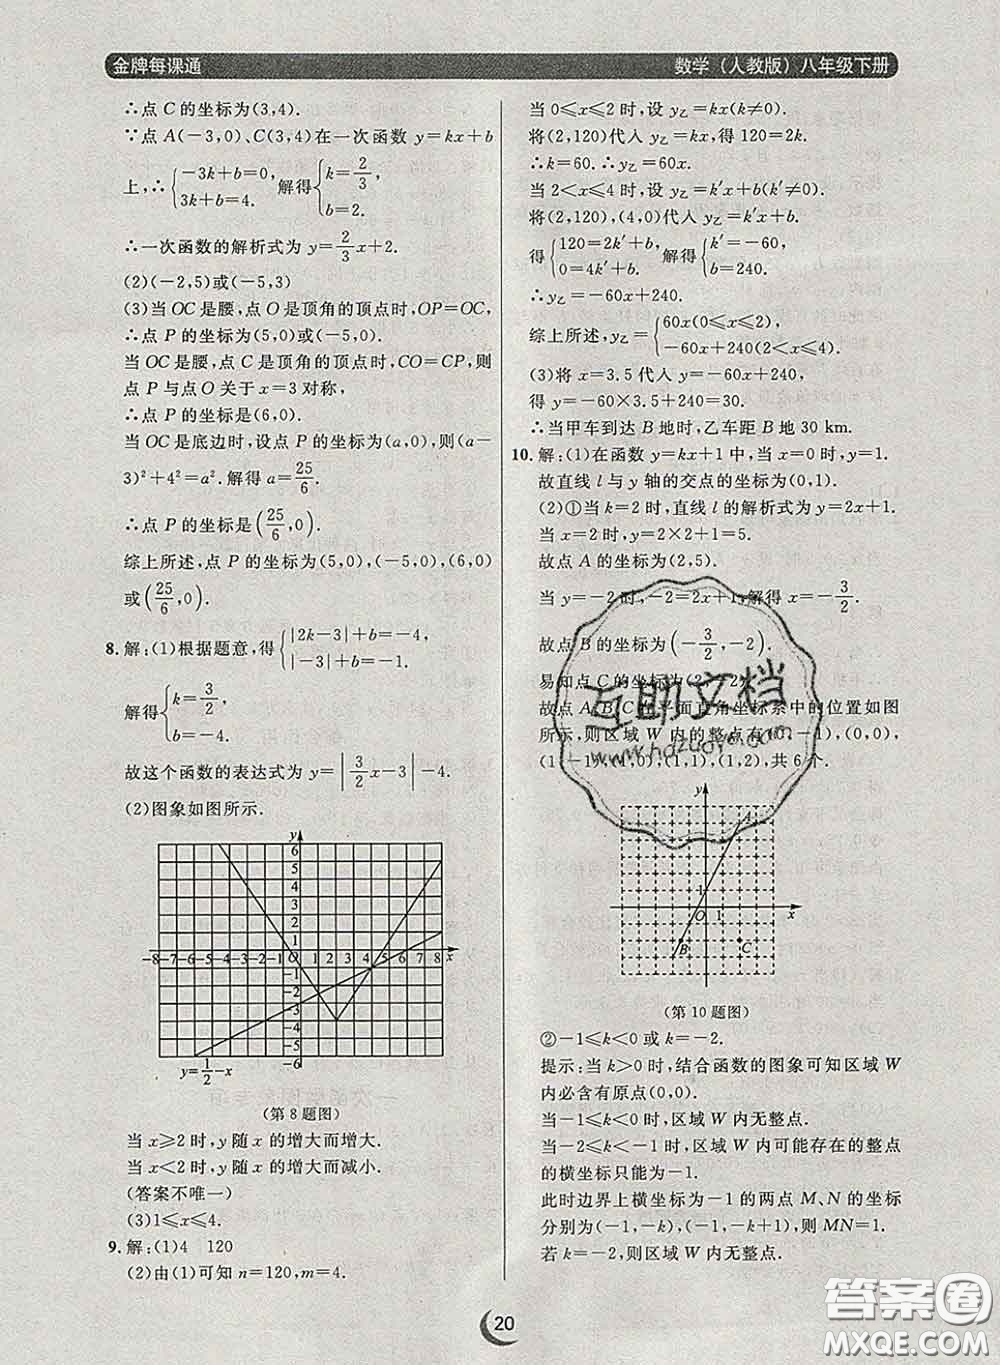 金牌每课通
数学（人教版）八年级下册
∴点 C 的坐标为(3,4).
∵点 A(-3,0)、C(3,4)在一次函数 y=kx+b
上,∴{-3k+b=0, 3k+b=4. 解得{k=2/3, b=2.
∴一次函数的解析式为 y=2/3x+2.
(2)(-2,5)或(-5,3)
(3)当 OC 是腰,点 O 是顶角的顶点时,OP=OC,
∴点 P 的坐标为(5,0)或(-5,0).
当 OC 是腰,点 C 是顶角的顶点时,CO=CP,则
点 P 与点 O 关于 x=3 对称,
∴点 P 的坐标是(6,0).
当 OC 是底边时,设点 P 的坐标为(a,0),则(a-
3)²+4²=a². 解得 a=25/6.
∴点 P 的坐标是(25/6,0).
综上所述,点 P 的坐标为(5,0),(-5,0),(6,0)
或(25/6,0).
8. 解:(1)根据题意,得{|2k-3|+b=-4, |-3|+b=-1.
解得{k=3/2, b=-4.
故这个函数的表达式为 y=|3/2x-3|-4.
(2)图象如图所示.
y
6
5
4
3
2
1
-8 -7 -6 -5 -4 -3 -2 -1 0 1 2 3 4 5 6 7 8 x
-1
-2
-3
-4
-5
-6
y=1/2-x
(第 8 题图)
当 x≥2 时,y 随 x 的增大而增大.
当 x<2 时,y 随 x 的增大而减小.
(答案不唯一)
(3)1≤x≤4.
9. 解:(1)4 120
(2)由(1)可知 n=120,m=4.
当 0≤x≤2 时,设 y乙=kx(k≠0).
将(2,120)代入 y乙=kx,得 120=2k.
∴k=60. ∴y乙=60x.
当 2<x≤4 时,设 y乙=k′x+b(k′≠0).
将(2,120),(4,0)代入 y乙=k′x+b.
得{120=2k′+b, 0=4k′+b. 解得{k′=-60, b=240.
∴y乙=-60x+240.
综上所述,y乙={60x(0≤x≤2), -60x+240(2<x≤4).
(3)将 x=3.5 代入 y=-60x+240,
得 y=-60×3.5+240=30.
∴当甲车到达 B 地时,乙车距 B 地 30 km.
10. 解:(1)在函数 y=kx+1 中,当 x=0 时,y=1.
故直线 l 与 y 轴的交点的坐标为(0,1).
(2)①当 k=2 时,直线 l 的解析式为 y=2x+1.
当 x=2 时,y=2×2+1=5.
故点 A 的坐标为(2,5).
当 y=-2 时,-2=2x+1,解得 x=-3/2.
故点 B 的坐标为(-3/2,-2).
易知点 C 的坐标为(2,-2).
故点 A,B,C 在平面直角坐标系中的位置如图
所示,则区域 W 内的整点有(0,-1),(0,0),
(1,-1),(1,0),(1,1),(1,2),共 6 个.
互助文档
www.hdzuoye.com
y
A
1
O 1 x
B C
(第 10 题图)
②-1≤k<0 或 k=-2.
提示:当 k>0 时,结合函数的图象可知区域 W
内必含有原点(0,0).
当-1≤k<0 时,区域 W 内无整点.
当-2≤k<-1 时,区域 W 内可能存在的整点
的横坐标只能为-1.
此时边界上横坐标为-1 的两点 M、N 的坐标
分别为(-1,-k),(-1,-k+1),则 MN=1.
若 k=-2,则区域 W 内无整点.
20
答案圈
MXQE.COM